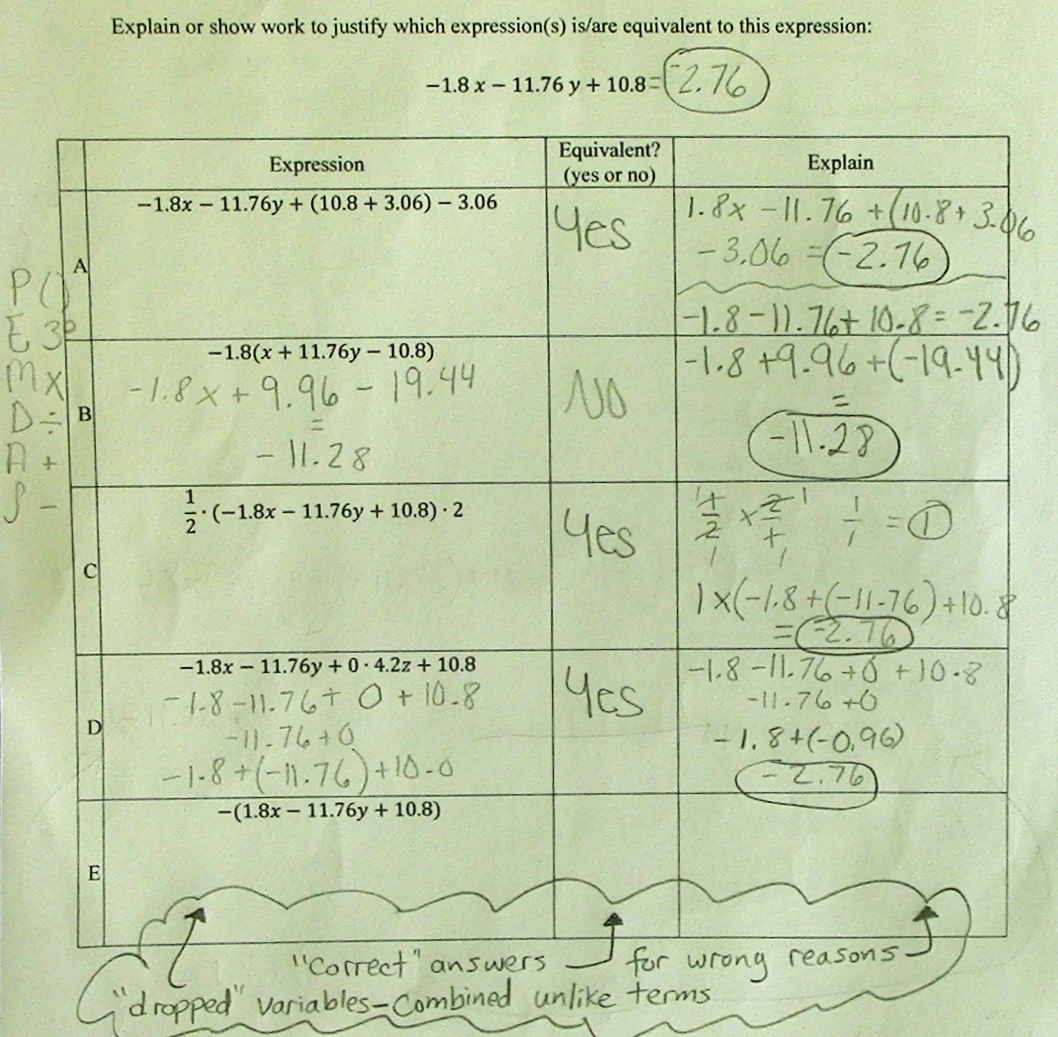 Explain or show work to justify which expression(s) is/are equivalent to this expression:
−1.8 x − 11.76 y + 10.8 = -2.76
Expression
Equivalent?
(yes or no)
Explain
P ()
E 3²
M x
D ÷
A +
S -
A
−1.8x − 11.76y + (10.8 + 3.06) − 3.06
Yes
1.8x - 11.76 + (10.8 + 3.06
- 3.06 = -2.76
-1.8 - 11.76 + 10.8 = -2.76
B
−1.8(x + 11.76y − 10.8)
-1.8x + 9.96 - 19.44
=
- 11.28
NO
-1.8 + 9.96 + (-19.44)
=
-11.28
C
1/2 · (−1.8x − 11.76y + 10.8) · 2
Yes
1/2 x 2/1 1/1 = 1
1 x (-1.8 + (-11.76) + 10.8
= -2.76
D
−1.8x − 11.76y + 0 · 4.2z + 10.8
-1.8 - 11.76 + 0 + 10.8
-11.76 + 0
-1.8 + (-11.76) + 10.0
Yes
-1.8 - 11.76 + 0 + 10.8
-11.76 + 0
-1.8 + (-0.96)
-2.76
E
−(1.8x − 11.76y + 10.8)
"Correct" answers for wrong reasons
"dropped" variables - Combined unlike terms